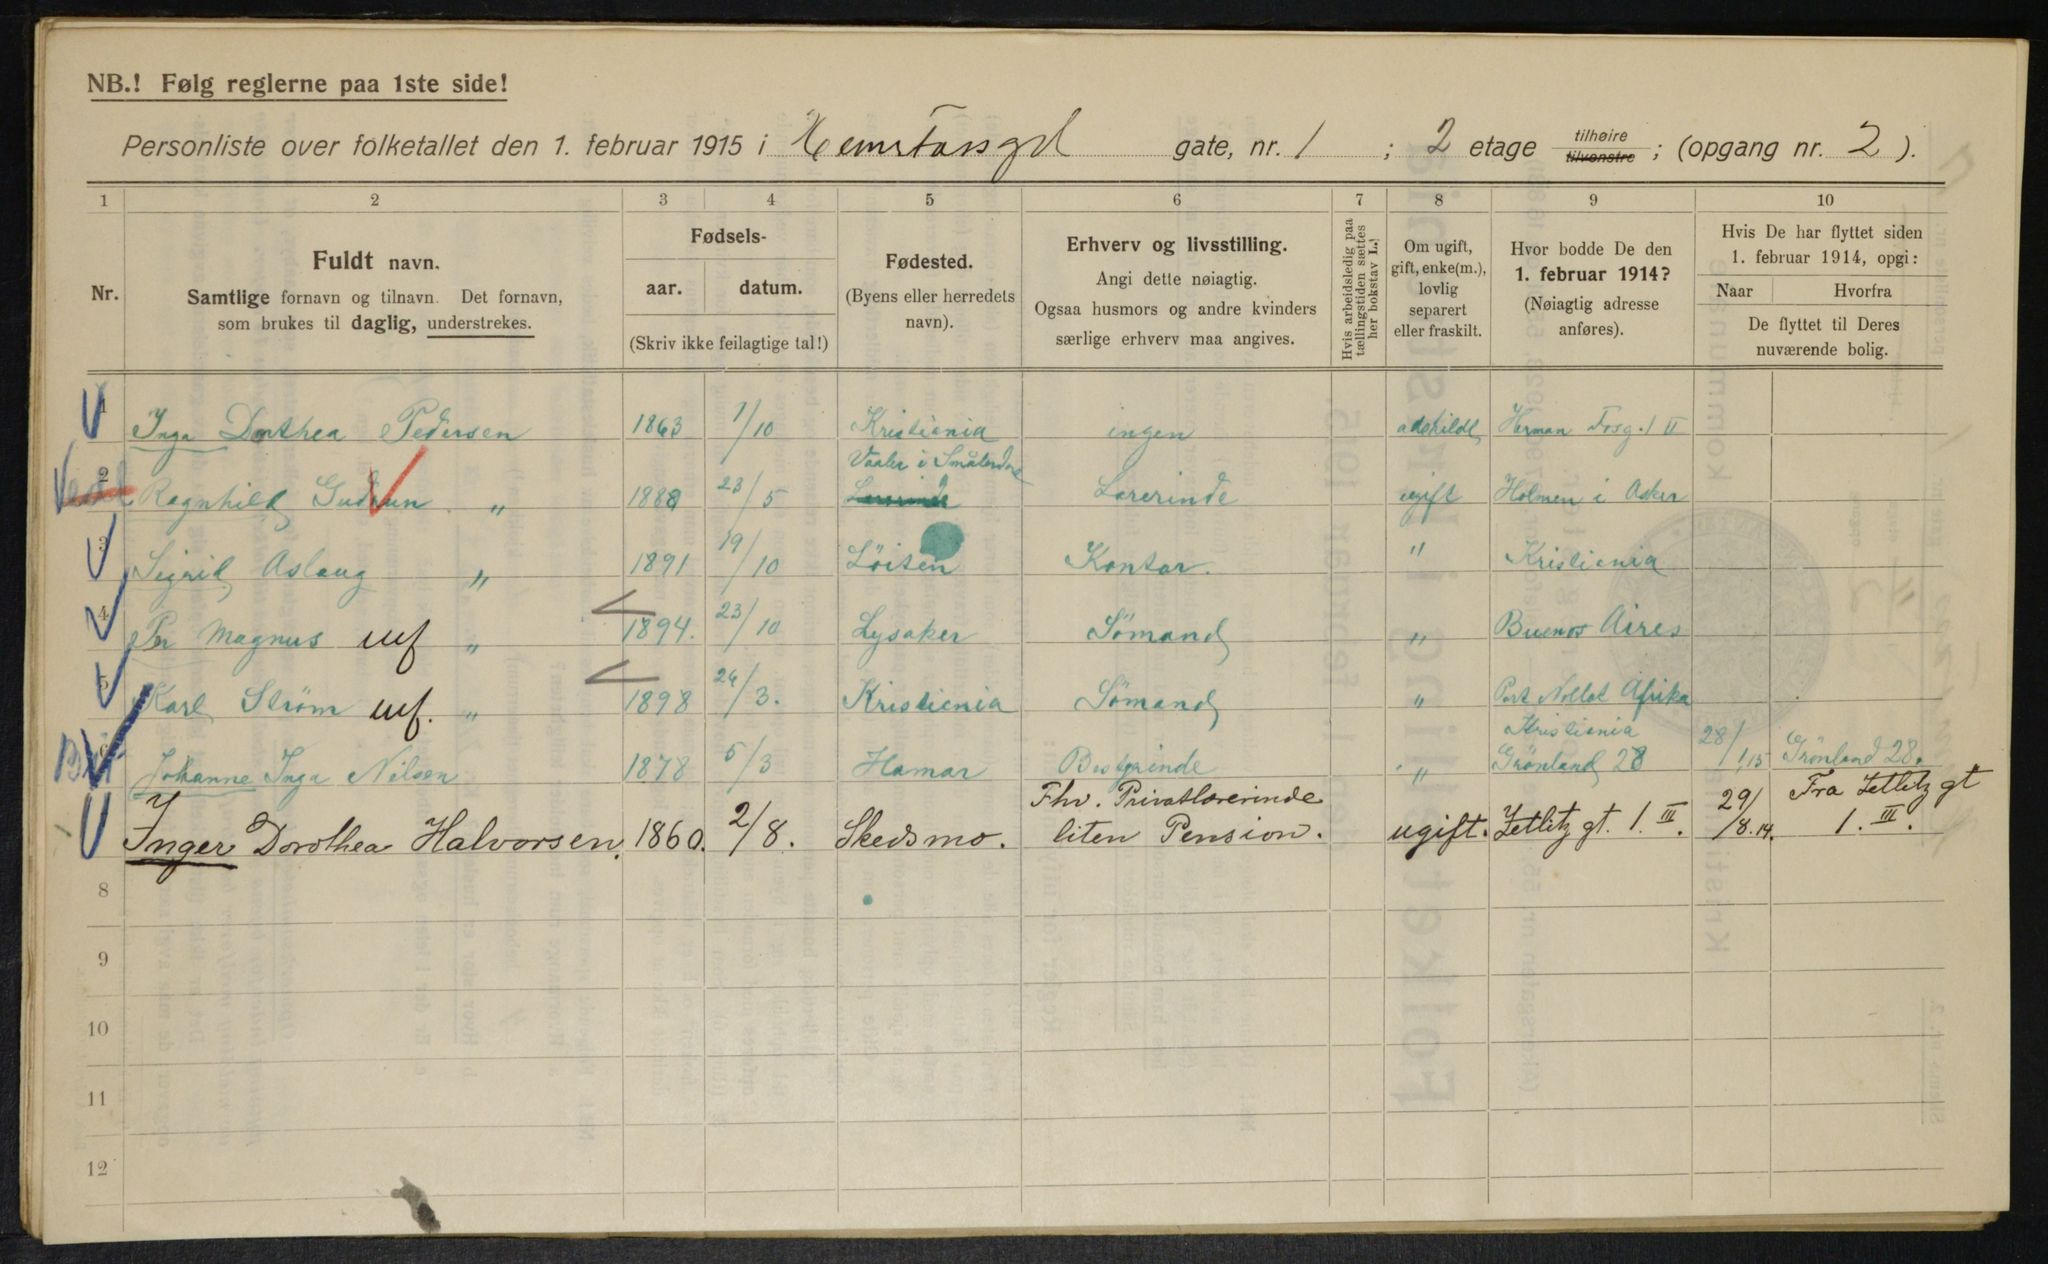 NB.! Følg reglerne paa 1ste side!
Personliste over folketallet den 1. februar 1915 i gate, nr. 1 ; 2 etage tilhøire tilvenstre ; (opgang nr. 2 ).
1 2 3 4 5 6 7 8 9 10
Nr.
Fuldt navn.
Samtlige fornavn og tilnavn. Det fornavn,
som brukes til daglig, understrekes.
Fødsels-
aar. datum.
(Skriv ikke feilagtige tal!)
Fødested.
(Byens eller herredets
navn).
Erhverv og livsstilling.
Angi dette nøiagtig.
Ogsaa husmors og andre kvinders
særlige erhverv maa angives.
Hvis arbeidsledig paa
tællingstiden sættes
her bokstav L.!
Om ugift,
gift, enke(m.),
lovlig
separert
eller fraskilt.
Hvor bodde De den
1. februar 1914?
(Nøiagtig adresse
anføres).
Hvis De har flyttet siden
1. februar 1914, opgi:
Naar Hvorfra
De flyttet til Deres
nuværende bolig.
1 Inga Dorthea Pedersen 1863 1/10 Kristiania ingen adskildt Herman Fosg. 1 II
2 Ragnhild Gudrun " 1888 23/5 Vaaler i Smålendne Lærerinde ugift Holmen i Asker
3 Sigrid Aslaug " 1891 19/10 Løiten Kontor. " Kristiania
4 Per Magnus " 1894. 23/10 Lysaker Sömand " Buenos Aires
5 Karl Strøm " 1898 24/3. Kristiania Sömand " Port Nollot Afrika
6 Johanne Inga Nilsen 1878 5/3 Hamar Bestyrinde " Kristiania Grönland 28 28/1,15 Grönland 28.
Inger Dorothea Halvorsen. 1860. 2/8. Skedsmo. Fhv. Privatlærerinde liten Pension. ugift. Zetlitz gt. 1. III. 29/8.14. Fra Zetlitz gt 1. III.
8
9
10
11
12